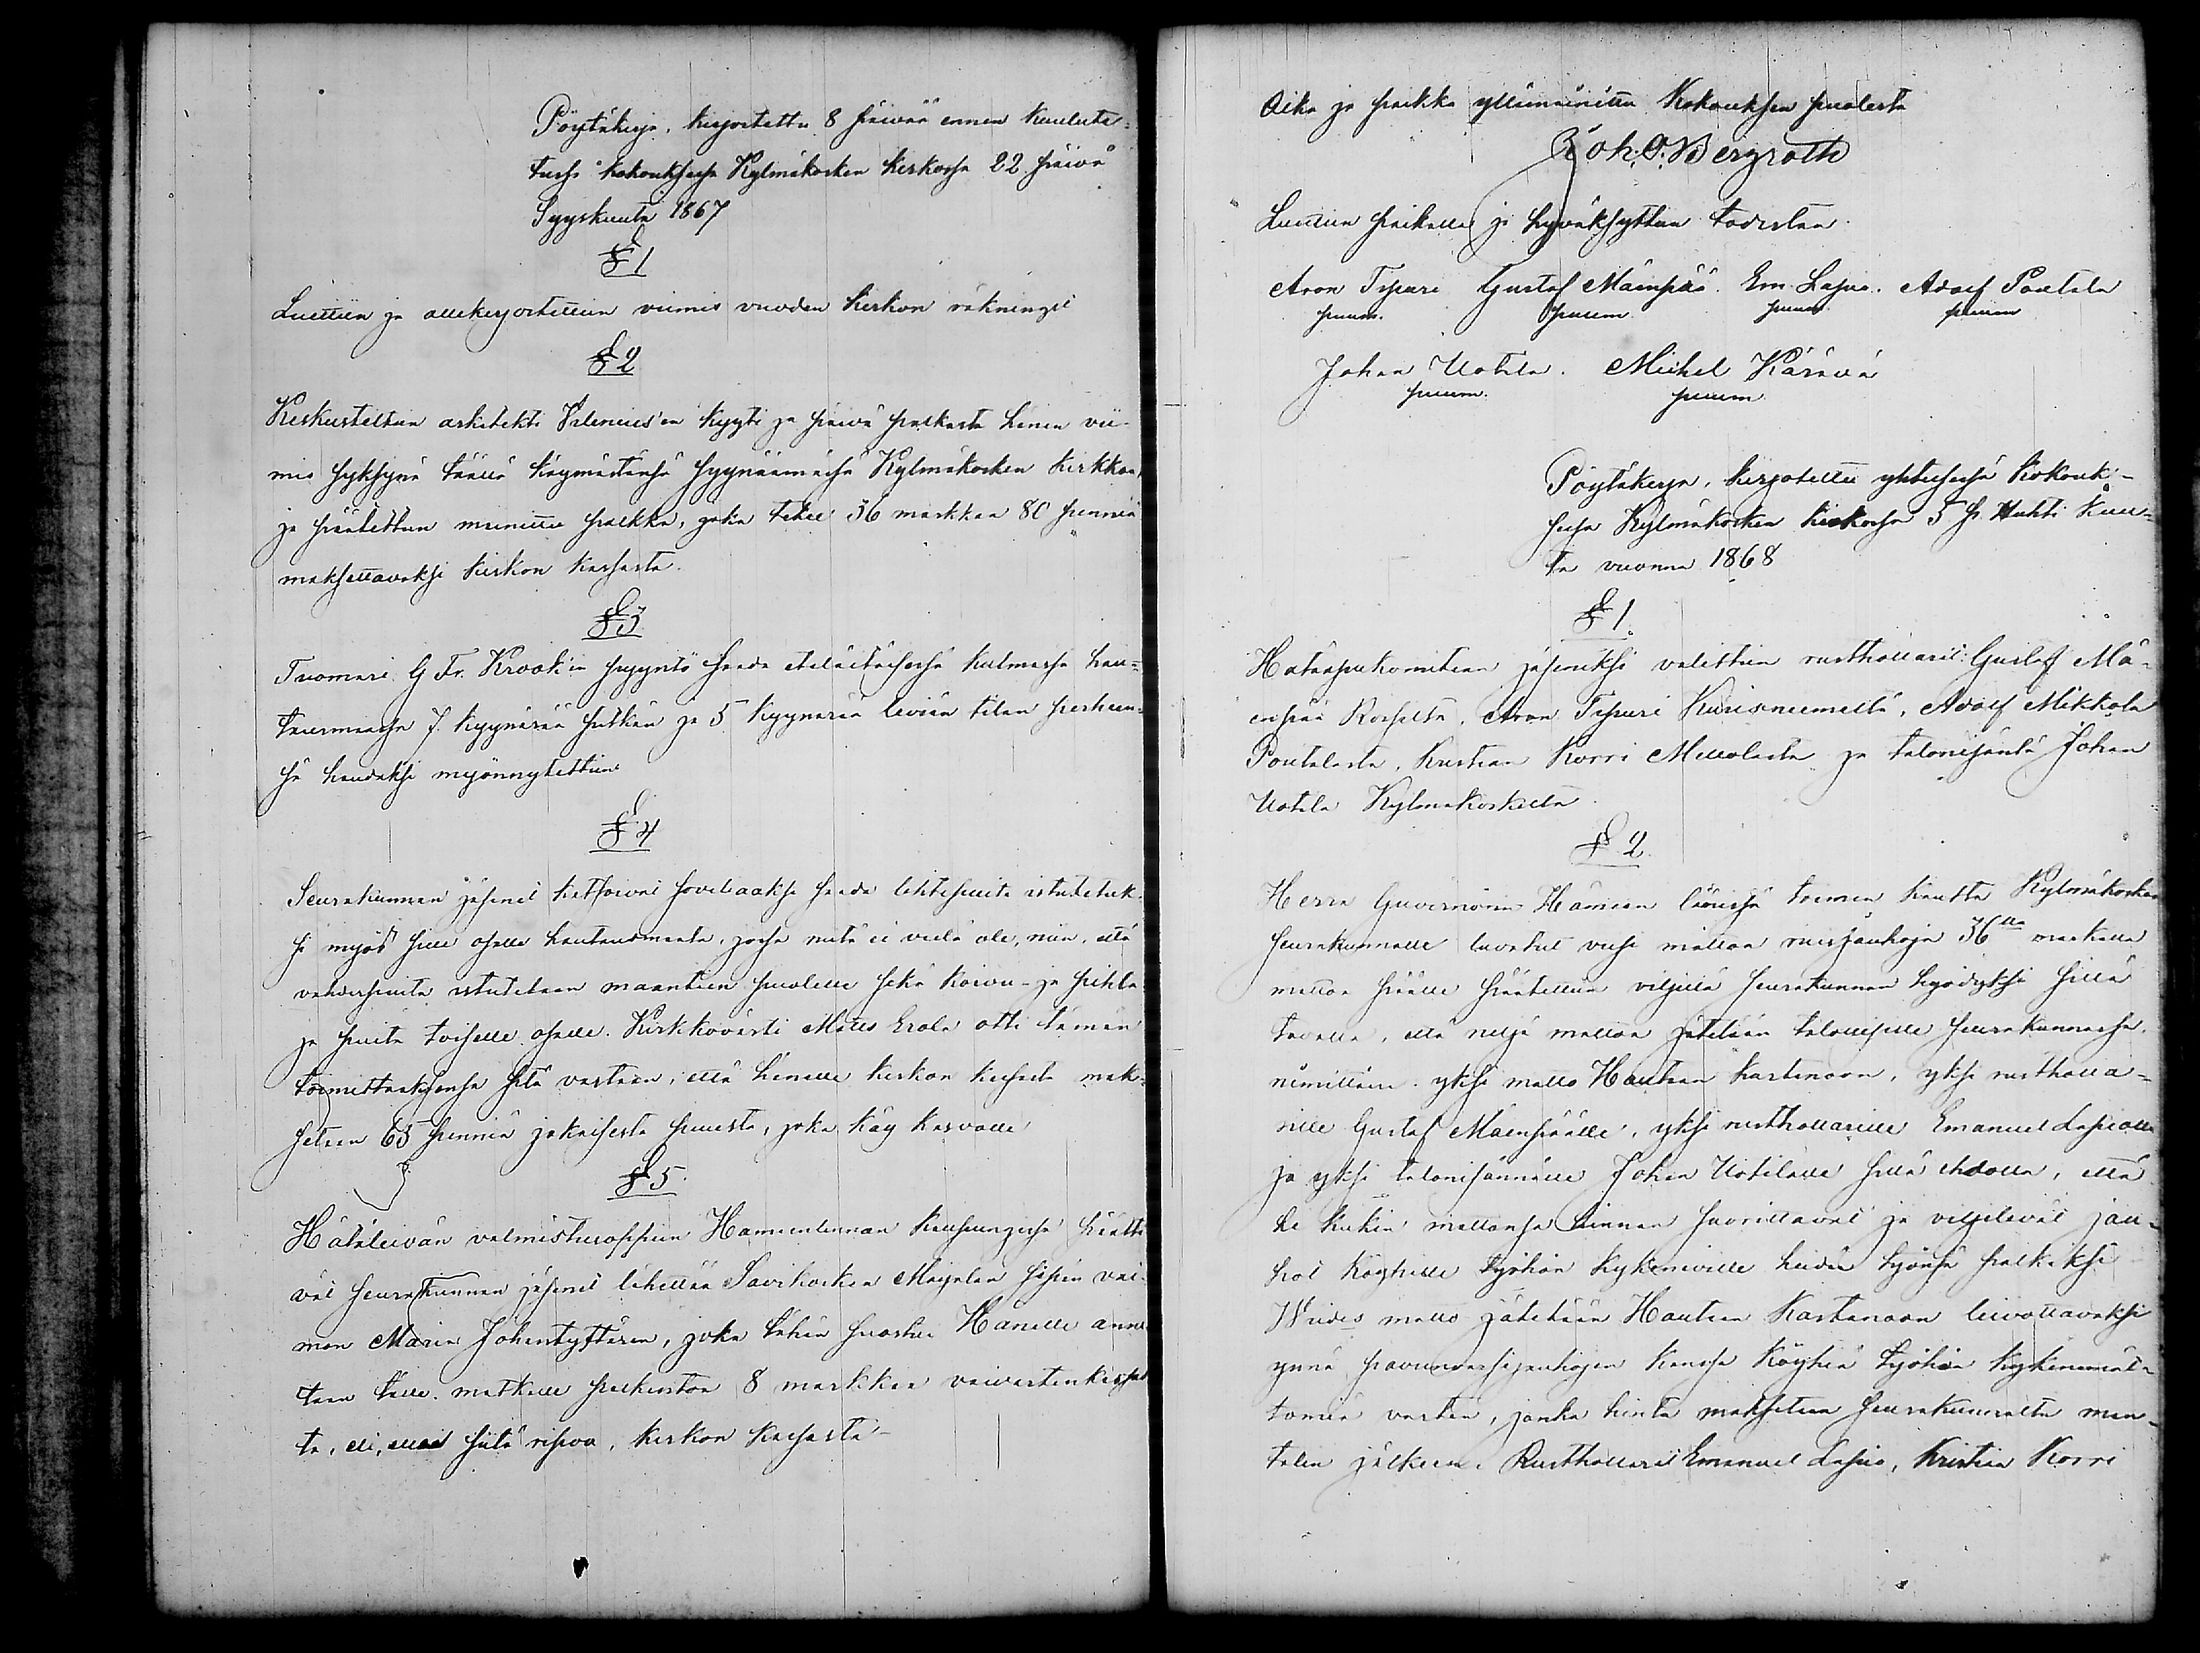 Pöytäkirja, kirjoitettu 8 päivää ennen kuulute-
tussa kokouksessa Kylmäkosken kirkossa 22 päivä
Syyskuuta 1867
§ 1
Luettiin ja allekirjoitettiin viimis vuoden kirkon räkningit
§ 2
Keskusteltiin arkitekti Valenius'en kyyti ja päivä palkasta hänen vii-
mis syksynä täällä käymästänsä syynäämässä Kylmäkosken kirkkoa,
ja päätettiin mainittu palkka, joka tekee 36 markkaa 80 penniä
maksettavaksi kirkon kassasta.
§ 3
Tuomari G Fr. Krook'in pyyntö saada eteläitäisessä kulmassa hau-
tausmaassa 7 kyynärää pitkän ja 5 kyynärää leviän tilan perheen-
sä haudaksi myönnytettiin
§ 4
Seurakunnan jäsenet katsoivat soveliaaksi saada lehtipuita istutetuk-
si myös sille osalle hautausmaata, jossa niitä ei vielä ole, niin, että
vahderpuita istutetaan maantien puolelle sekä koivu- ja pihla-
ja puita toiselle osalle. Kirkkoväärti Matts Erola otti tämän
toimittaaksensa sitä vastaan, että hänelle kirkon kassasta mak-
setaan 65 penniä jokaisesta puusta, joka käy kasvolle
§ 5
Hätäleivän valmistusoppiin Hämeenlinnan kaupungissa päätti-
vät seurakunnan jäsenet lähettää Savikosken Maijalan sepän vai-
mon Maria Johantyttären, joka tähän suostui Hänelle anne-
taan tälle matkalle palkintoa 8 markkaa vaivastenkassas-
ta, eli, ellei siitä riipoa, kirkon kassasta
Aika ja paikka yllämainittu Kokouksen puolesta
Joh. O. Bergroth
Luetuksi paikalla ja hyväksyttyn todistaa
Aron Tipuri Gustaf Mäenpää. Em. Lapio. Adolf Poutala
puum. puum. puum. puum
Johan Uotila. Michel Kärävä
puum. puum
Pöytäkirja, kirjotettu yhteisessä kokouk-
sessa Kylmäkosken kirkossa 5 p. Huhti kuu-
ta vuonna 1868
§ 1.
Hätäapukomitean jäseniksi valittiin rusthollarit: Gustaf Mä-
enpää Rospilta, Aron Tipuri Kurisniemeltä, Adolf Mikkola
Poutalasta, Kristian Korri Mellolasta ja talonisäntä Johan
Uotila Kylmäkoskella
§ 2.
Herra Guvernörin Hämeen läänissä toimen kautta Kylmäkosken
seurakunnalle luvatut viisi mattoa ruisjauhoja 36lla markalla
matto päälle päätettiin viljellä seurakunnan hyödyksi sillä
tavalla, että neljä mattoa jätetään talollisille seurakunnassa,
nimittäin: yksi matto Hautaan Kartanoon, yksi rusthollaa-
rille Gustaf Mäenpäälle, yksi rusthollarille Emanuel Lapiolle
ja yksi talonisännälle Johan Uotilalle sillä ehdolla, että
he kukin mattonsa hinnan suorittavat ja viljelevät jau-
hot köyhille työhön kykeneville heidän työnsä palkaksi
Wiides matto jätetään Hautaan Kartanoon leivottavaksi
ynnä pavunvarsijauhojen kanssa köyhiä työhön kykenemät-
tömiä varten, jonka hinta maksetaan seurakunnalta man-
talin jälkeen. Rusthollarit Emanuel Lapio, Kristian Korri